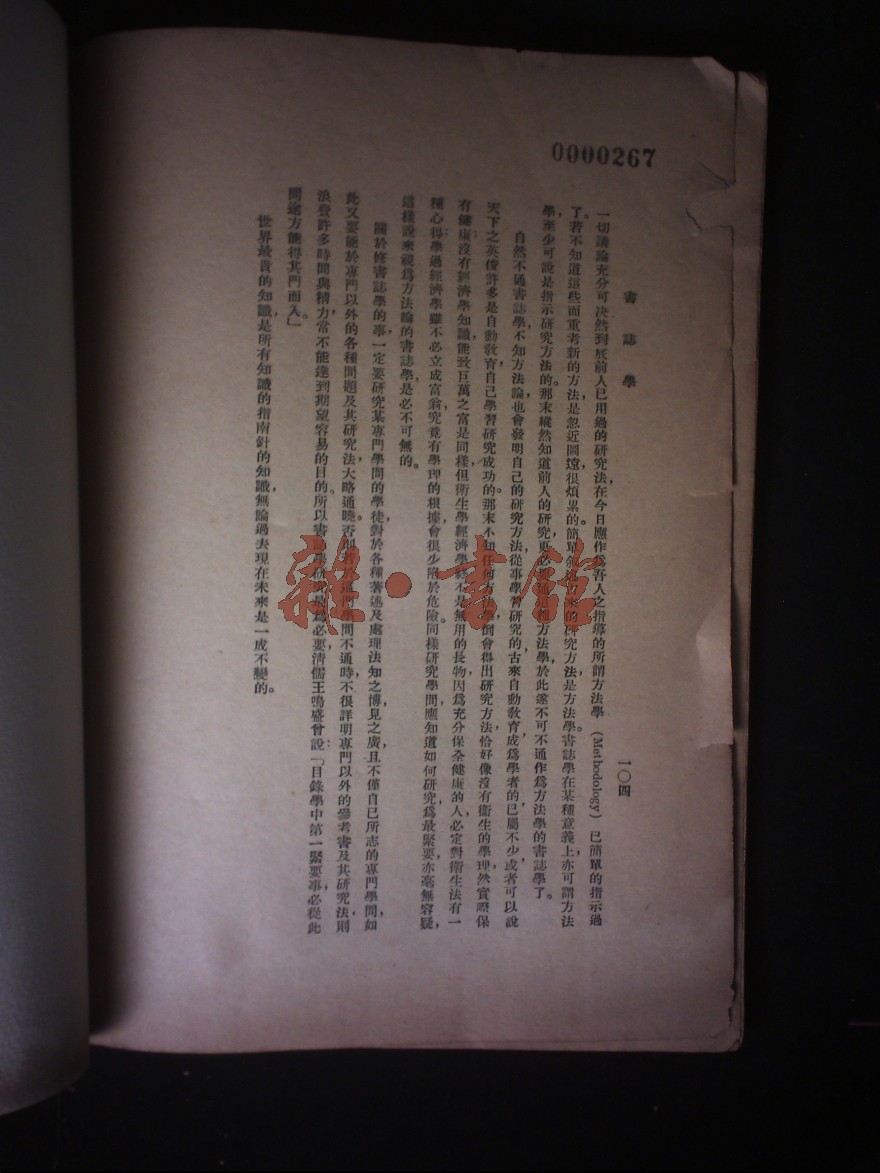 0000267
書誌學
一〇四
一切議論充分可決然到底前人已用過的研究法，在今日應作爲吾人之指導的所謂方法學（Methodology）已簡單的指示過
了。若不知道這些而重考新的方法，是忽近圖遠，很煩累的。簡單敘述方來的研究方法，是方法學。書誌學在某種意義上亦可謂方法
學，至少可說是指示研究方法的。那末縱然知道前人的研究，更必要通這種方法學，於此遂不可不通作爲方法學的書誌學了。
自然不通書誌學，不知方法論，也會發明自己的研究方法，從事學習研究的。古來自動教育，成爲學者的，已屬不少，或者可以說
天下之英俊，許多是自動教育，自己學習研究成功的。那末不知任何方法學，倒會得出研究方法，恰好像沒有衞生的學理，然實際保
有健康，沒有經濟學知識，能致巨萬之富是同樣，但衞生學經濟學終不是無用的長物，因爲充分保全健康的人，必定對衞生法有一
種心得，學過經濟學，雖不必立成富翁，究竟有學理的根據，會很少陷於危險。同樣研究學問，應知道如何研究，爲最緊要，亦毫無容疑，
這樣說來，視爲方法論的書誌學，是必不可無的。
關於修書誌學的事，一定要研究某專門學問的學徒，對於各種著述及處理法知之博，見之廣，且不僅自己所志的專門學問，如
此又要能於專門以外的各種問題及其研究法大略通曉。否則若於這門學問不通時，不很詳明專門以外的參考書及其研究法，則
浪費許多時間與精力，常不能達到期望容易的目的。所以書誌學研究最爲必要，清儒王鳴盛曾說：「目錄學中第一緊要事，必從此
問途，方能得其門而入。」
世界最貴的知識，是所有知識的指南針的知識，無論過去現在未來是一成不變的。
雜·書館